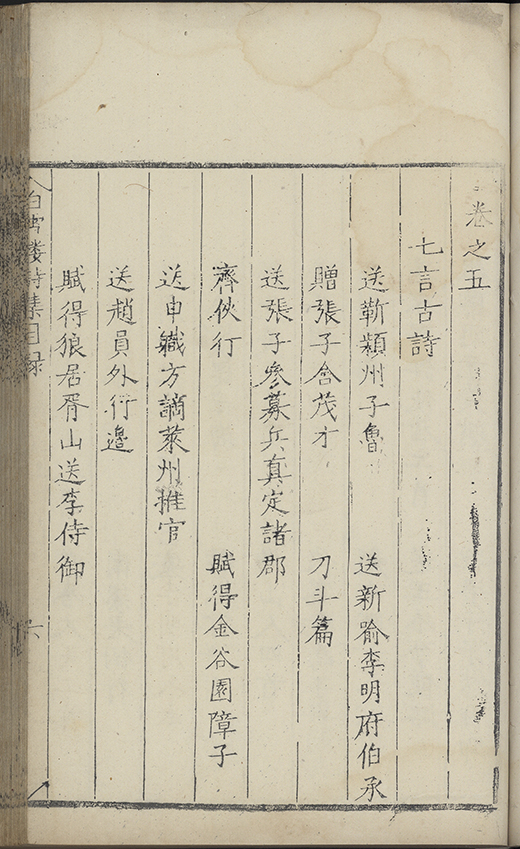 卷之五
七言古詩
送靳潁州子魯　送新喻李明府伯承
贈張子含茂才　刀斗篇
送張子參募兵真定諸郡
齊俠行　賦得金谷園障子
送申職方謫萊州推官
送趙員外行邊
賦得狼居胥山送李侍御
白雪樓詩集目録
六